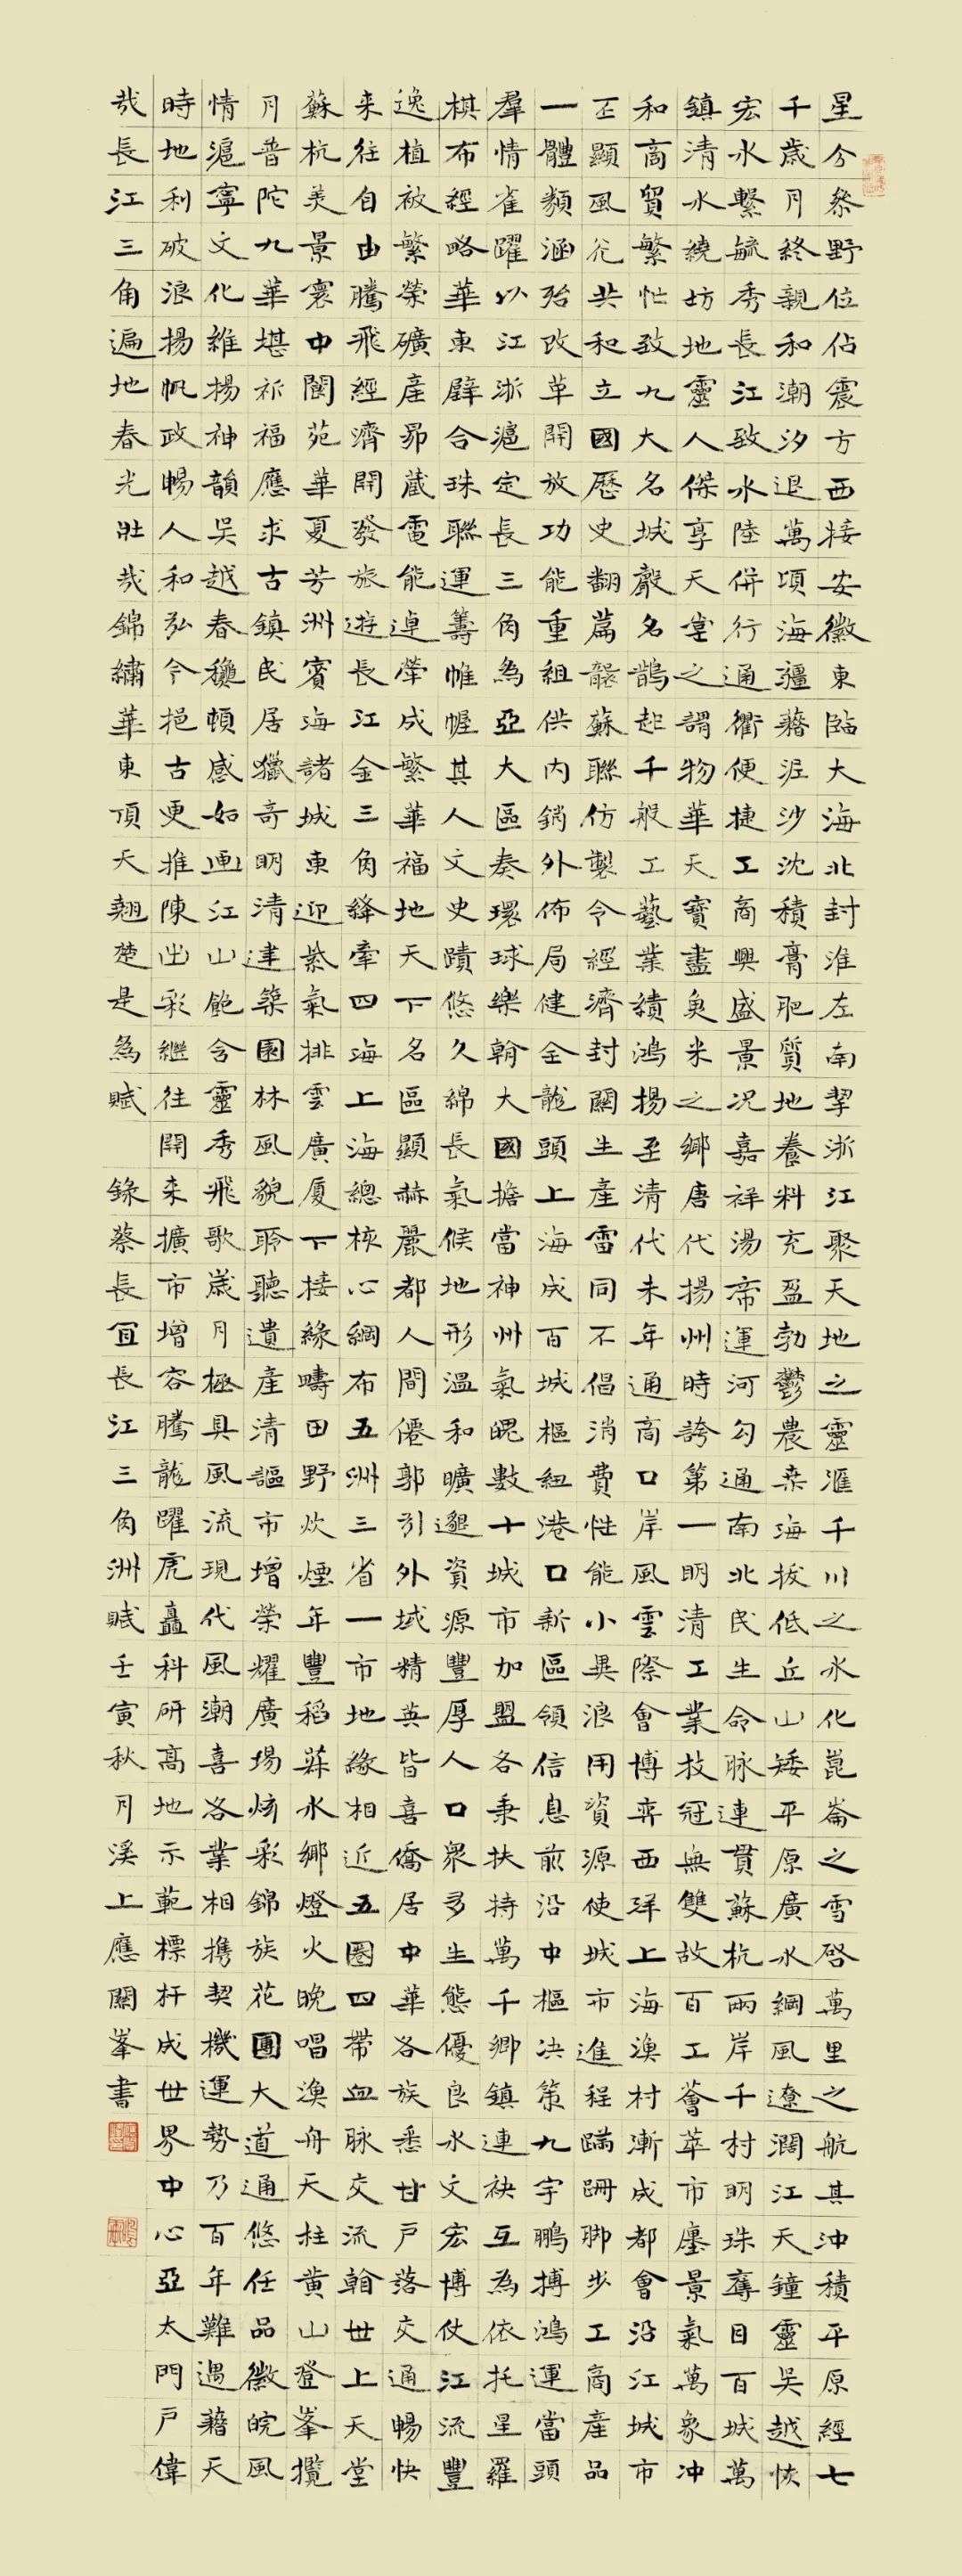 星分察野位佔震方西接安徽東臨大海北封淮左南挈浙江聚天地之靈滙千川之水化崑崙之雪啓萬里之航其沖積平原經七
千歲月終親和潮汐退萬頃海疆藉泥沙沈積膏肥質地養料充盈勃鬱農桒海拔低丘山矮平原廣水網風遼濶江天鐘靈吳越恢
宏水繫毓秀長江致水陸併行通衢便捷工商興盛景況嘉祥湯帝運河勾通南北民生命脉連貫蘇杭兩岸千村明珠奪目百城萬
鎮清水繞坊地靈人傑享天堂之謂物華天寶盡魚米之鄉唐代揚州時誇第一明清工業技冠無雙故百工薈萃市廛景氣萬象冲
和商貿繁忙致九大名城聲名鵲起千般工藝業績鴻揚至清代末年通商口岸風雲際會博弈西洋上海漁村漸成都會沿江城市
丕顯風光共和立國歷史翻篇罄蘇聯仿製令經濟封關生產雷同不倡消費性能小異浪用資源使城市進程蹣跚腳步工商產品
一體類涵殆改革開放功能重組供内銷外佈局健全龍頭上海成百城樞紐港口新區領信息前沿中樞决策九宇鵬搏鴻運當頭
羣情雀躍以江浙滬定長三角為亞大區奏環球樂翰大國擔當神州氣魄數十城市加盟各秉扶持萬千鄉鎮連袂互為依托星羅
棋布經略華東歷合珠聯運籌帷幄其人文史蹟悠久綿長氣候地形溫和曠邈資源豐厚人口眾多生態優良水文宏博仗江流豐
逸植被繁榮礦産昴藏電能卓犖成繁華福地天下名區顯赫麗都人間僊郭引外域精英皆喜僑居中華各族悉甘戶落交通暢快
来往自由騰飛經濟開發旅遊長江金三角絳牽四海上海總核心網布五洲三省一市地緣相近五圈四帶血脉交流翰世上天堂
蘇杭美景寰中閬苑華夏芳洲賓海諸城東迎紫氣排雲廣厦下接緣疇田野炊煙年豐稻菽水鄉燈火晚唱漁舟天柱黄山登峯攬
月普陀九華堪祈福應求古鎮民居獵奇明清建築園林風貌聆聽遺産清謳市增榮耀廣場炫彩錦族花圃大道通悠任品徽皖風
情滬寧文化維揚神韻吳越春穠頓感如画江山飽含靈秀飛歌歲月極具風流現代風潮喜各業相携契機運勢乃百年難遇藉天
時地利破浪揚帆政暢人和弘今挹古更推陳出彩繼往開来擴市增容騰龍躍虎矗科研高地示範標杆成世界中心亞太門戶偉
哉長江三角遍地春光壯哉錦繡華東頂天翹楚是為賦
錄蔡長宜長江三角洲賦壬寅秋月溪上應關峯書